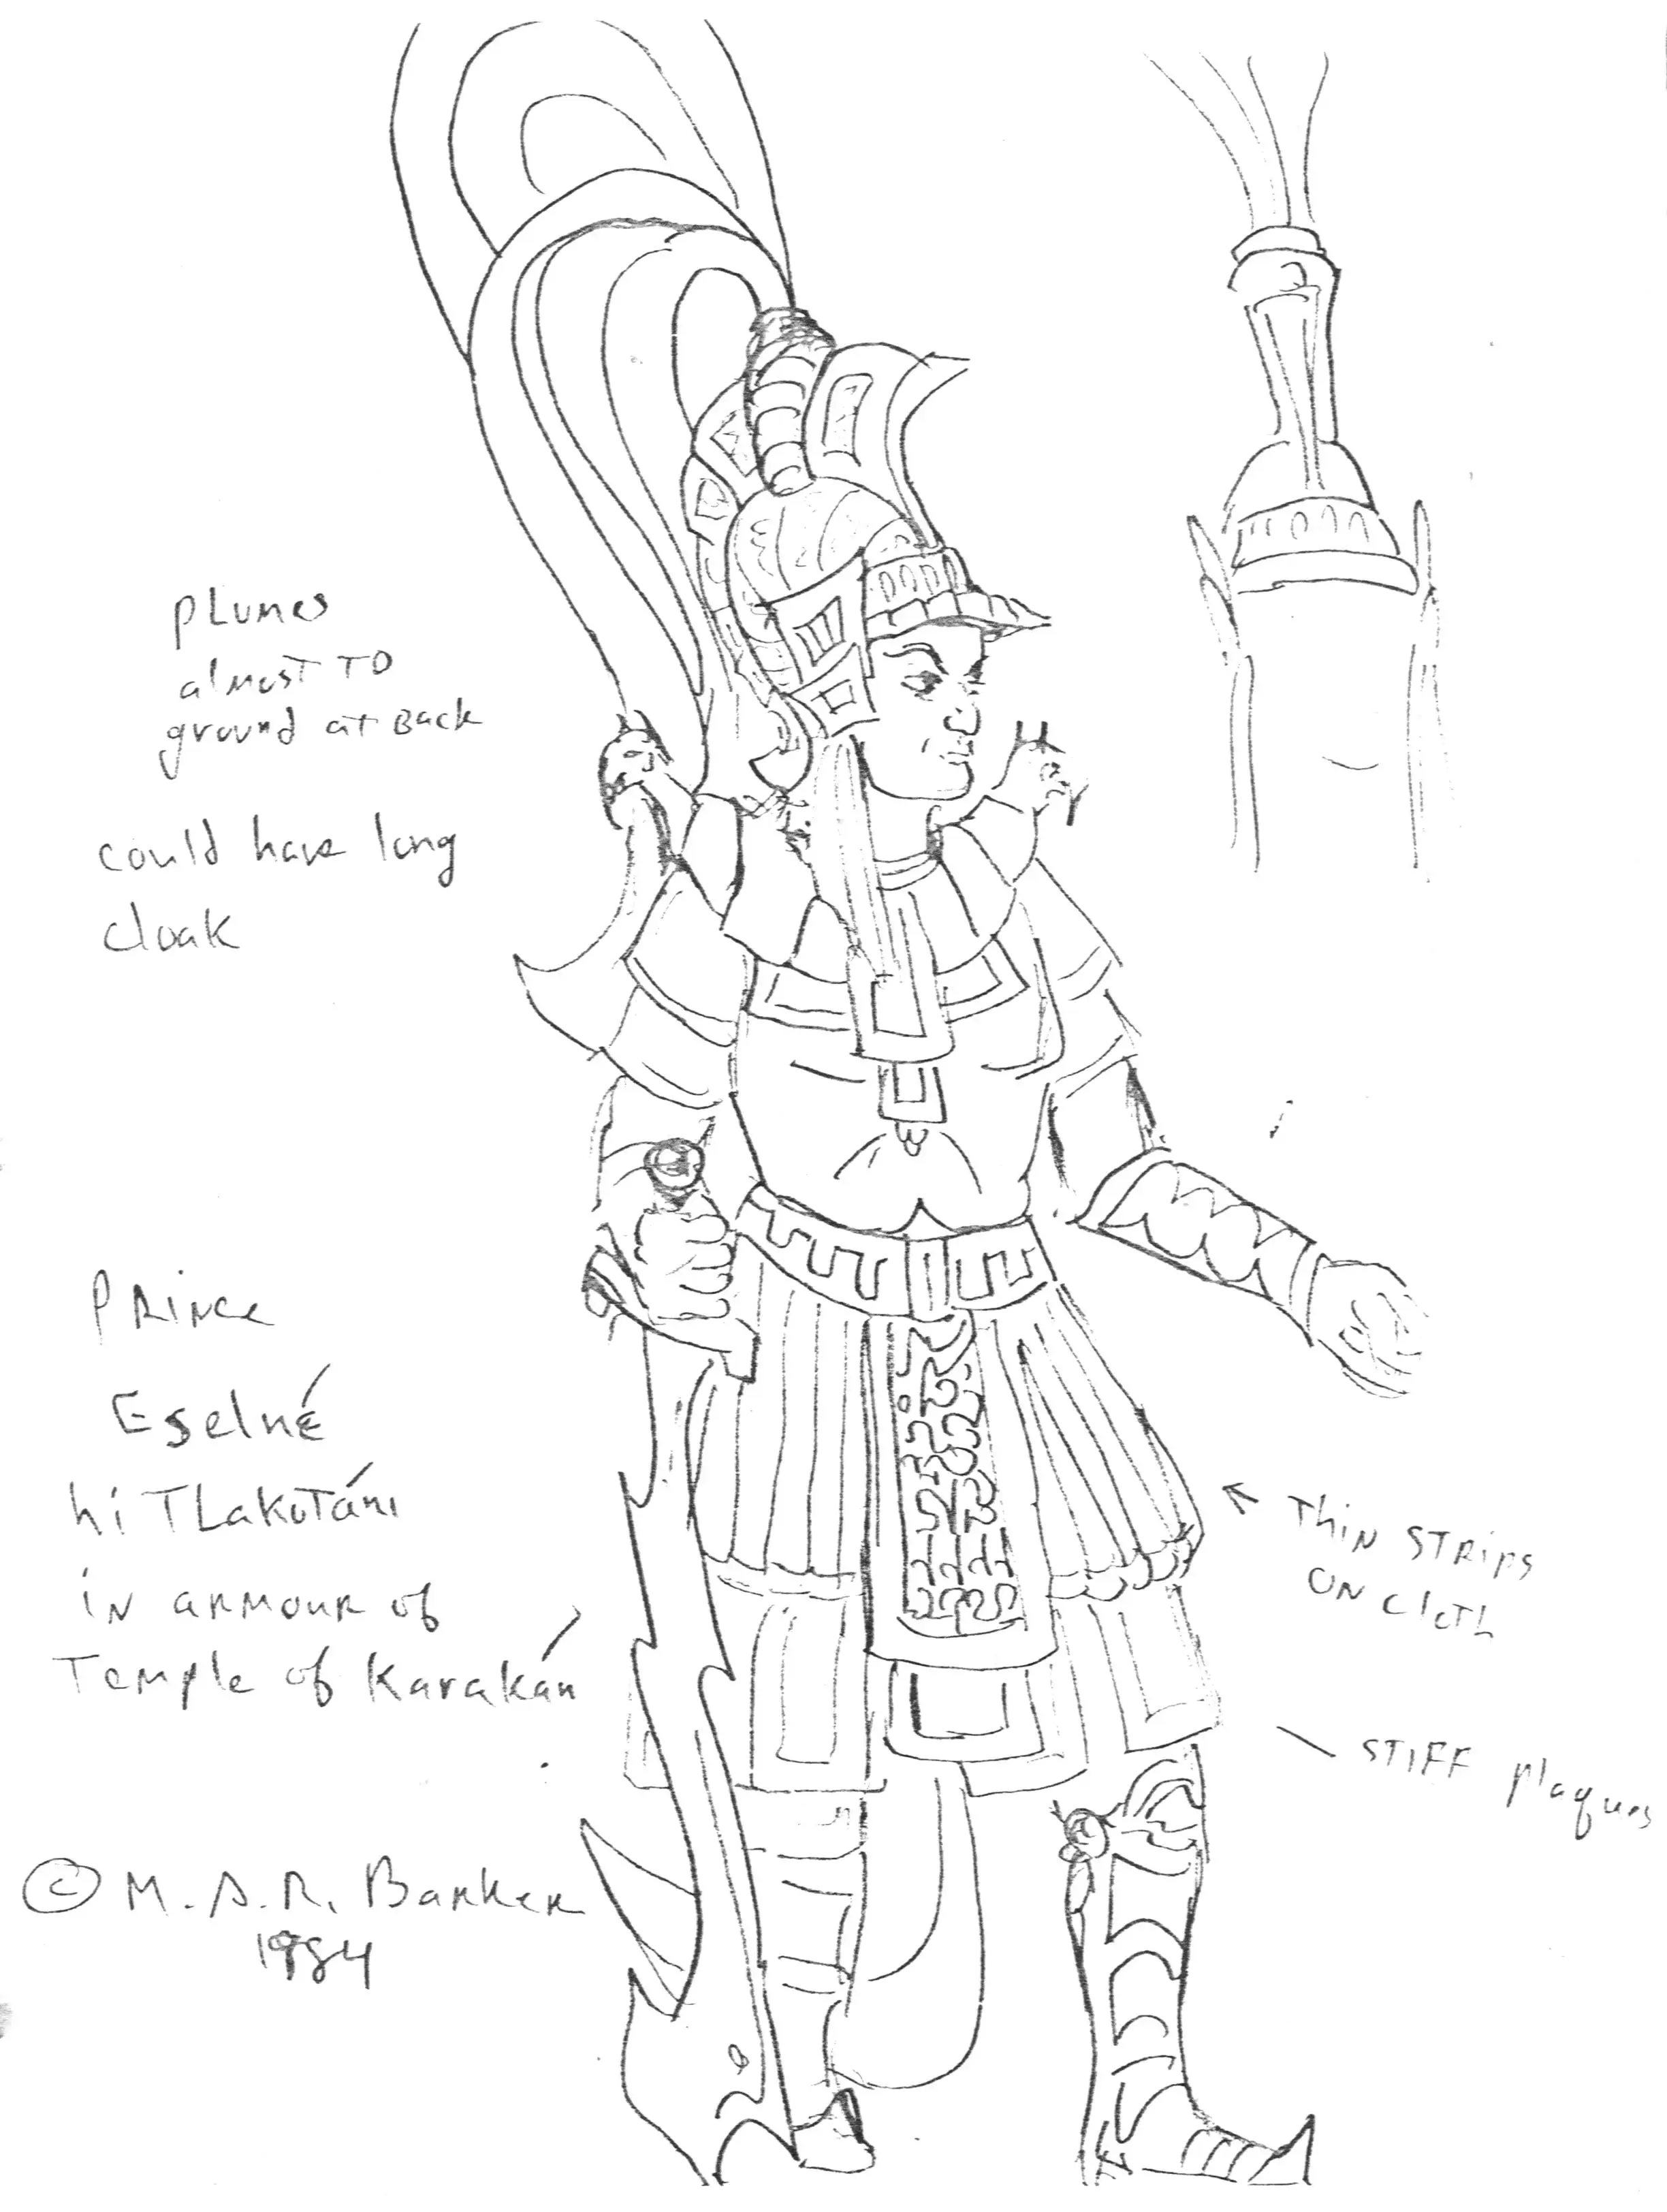 plumes
almost to
ground at back
could have long
cloak
Prince
Eselné
hi Tlakotáni
in armour of
Temple of Karakán
© M. A. R. Barker
1984
← Thin strips
on cloth
stiff plaques